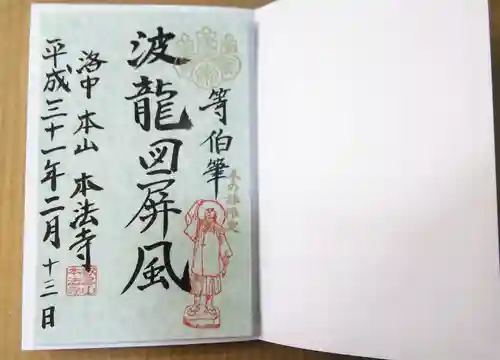 等伯筆
波龍図屏風
洛中 本山 本法寺
平成三十一年二月十三日